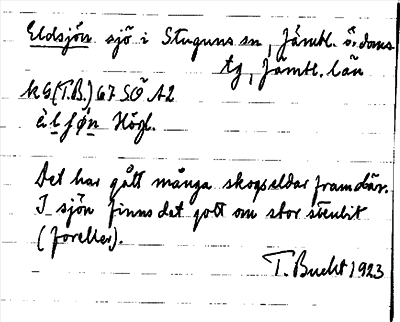 Eldsjön sjö i Stuguns sn, Jämtl. ö. doms
tg, Jämtl. län
kG (T.B.) 67 SÖ A2
Högl.
Det har gått många skogseldar fram där.
I sjön finns det gott om stor
(foreller).
T. Bucht 1923